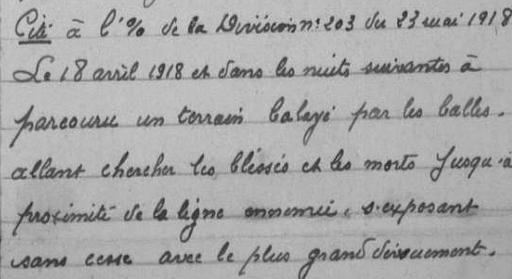 Cité à l'% de la Division n: 203 du 23 mai 1918
Le 18 avril 1918 et dans les nuits suivantes à
parcouru un terrain balayé par les balles.
allant chercher les bléssés et les morts jusqu'à
proximité de la ligne ennemie. s'exposant
sans cesse avec le plus grand dévouement.